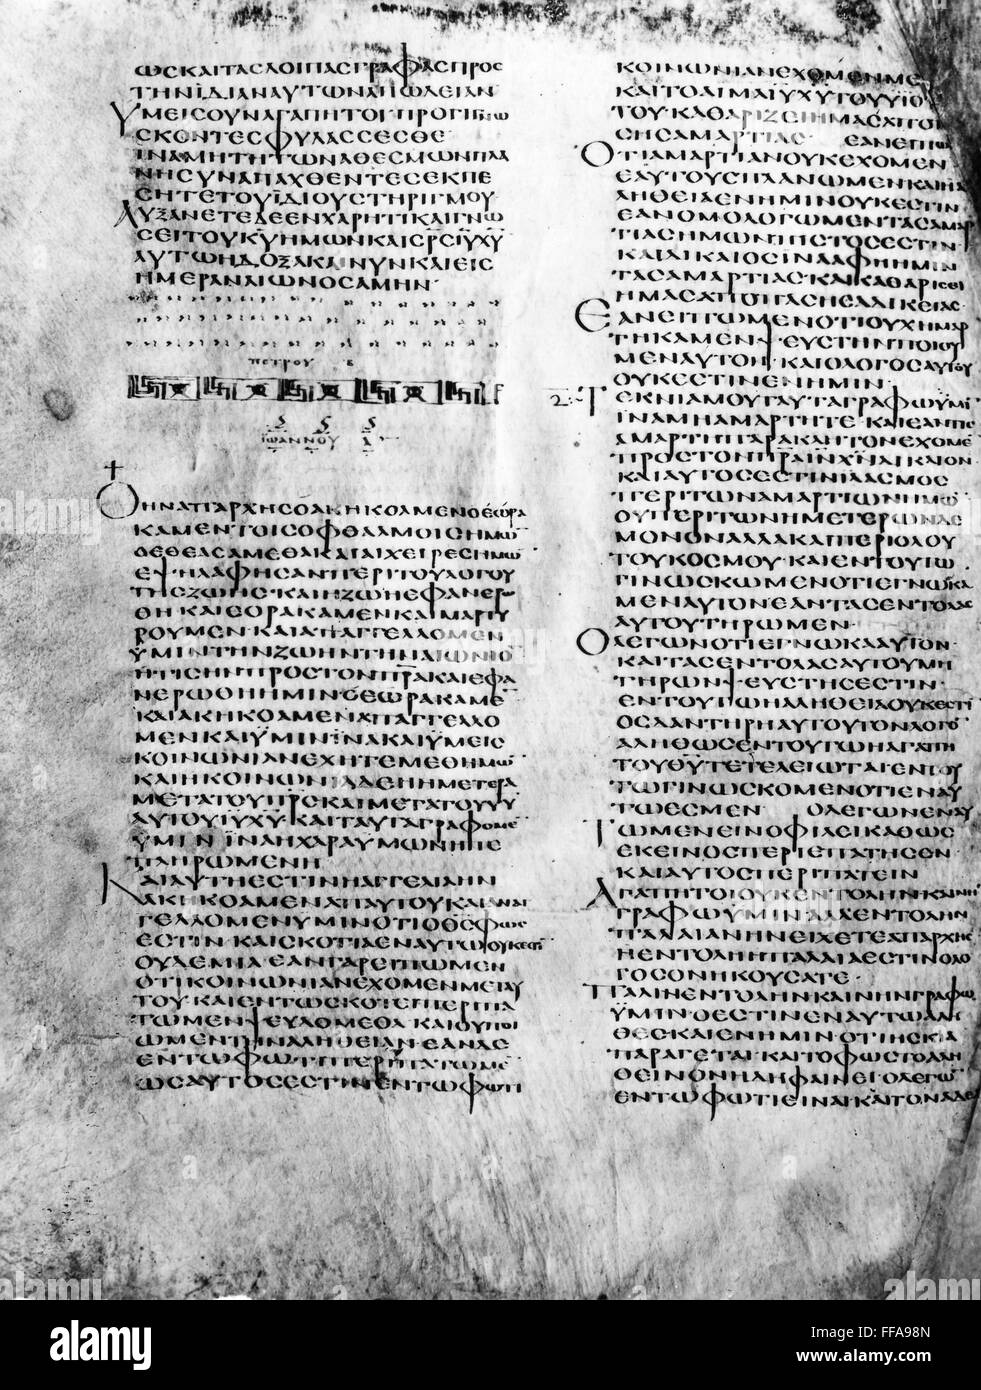 ωσκαιτασλοιπασγραφασπροσ
τηνϊδιαναυτωναπωλειαν
Υμεισουναγαπητοιπρογινω
σκοντεσφυλασσεσθε
ϊναμητητωναθεσμωνπλα
νησυναπαχθεντεσεκπε
σητετουϊδιουστηριγμου
Αυξανετεδεενχαριτικαιγνω
σειτουκυημωνκαισρσιυχυ
αυτωηδοξακαινυνκαιεισ
ημεραναιωνοσαμην
πετρου β
ϊωαννου α
Οηναπαρχησοακηκοαμενοεωρα
καμεντοισοφθαλμοισημω
οεθεασαμεθακαιαιχειρεσημω
εψηλαφησανπεριτουλογου
τησζωησ·καιηζωηεφανερω
θηκαιεορακαμενκαιμαρτυ
ρουμεν·καιαπαγγελλομεν
υμιντηνζωηντηναιωνιο
ητισηνπροστονπρακαιεφα
νερωθηημινοεωρακαμε
καιακηκοαμεναπαγγελλο
μενκαιϋμινϊνακαιϋμεισ
κοινωνιανεχητεμεθημω
καιηκοινωνιαδεηημετερα
μετατουπρσκαιμετατουυυ
αυτουιυχυ·καιταυταγραφομε
ϋμινϊναηχαραυμωνηπε
πληρωμενη
Καιαυτηεστινηαγγελιαην
ακηκοαμεναπαυτουκαιαναγ
γελλομενυμινοτιοθσφωσ
εστινκαισκοτιαεναυτωουκεστι
ουδεμιαεανγαρειπωμεν
οτικοινωνιανεχομενμεταυ
τουκαιεντωσκοτειπεριπα
τωμενψευδομεθακαιουποι
ωμεντηναληθειανεανδε
εντωφωτιπεριπατωμε
ωσαυτοσεστινεντωφωτι
κοινωνιανεχομενμε
καιτοαιμαιυχυτουυιου
τουκαθαριζειημασαποπα
σησαμαρτιασ εανειπω
Οτιαμαρτιανουκεχομεν
εαυτουσπλανωμενκαιη
αληθειαενημινουκεστιν
εανομολογωμεντασαμαρ
τιασημωνπιστοσεστιν
καιδικαιοσινααφηημιν
τασαμαρτιασ·καικαθαριση
ημασαποπασησαδικειασ·
Εανειπωμενοτιουχημαρ
τηκαμενψευστηνποιου
μεναυτον·καιολογοσαυτου
ουκεστινενημιν·
Τεκνιαμουταυταγραφωϋμι
ϊναμηαμαρτητε·καιεαντισ
αμαρτηπαρακλητονεχομε
προστονπραινχνδικαιον
καιαυτοσεστινϊλασμοσ
περιτωναμαρτιωνημω
ουπεριτωνημετερωνδε
μονοναλλακαιπεριολου
τουκοσμου·καιεντουτω
γινωσκωμενοτιεγνωκα
μεναυτονεαντασεντολασ
αυτουτηρωμεν·
Ολεγωνοτιεγνωκααυτον
καιτασεντολασαυτουμη
τηρωνψευστησεστιν
εντουτωηαληθειαουκεστι
οσδαντηρηαυτουτονλογο
αληθωσεντουτωηαγαπη
τουθυτετελειωταιεντου
τωγινωσκομενοτιεναυ
τωεσμεν ολεγωνεναυ
Τωμενεινοφιλεικαθωσ
εκεινοσπεριεπατησεν
καιαυτοσπεριπατειν
Αγαπητοιουκεντοληνκαινη
γραφωϋμιναλλεντολην
παλαιανηνειχετεαπαρχησ
ηεντοληηπαλαιαεστινολο
γοσονηκουσατε·
Παλινεντοληνκαινηνγραφω
ϋμινοεστινεναυτωαλη
θεσκαιενημινοτιησκια
παραγεταικαιτοφωστοαλη
θεινονηδηφαινειολεγω
εντωφωτιειναικαιτοναδελ